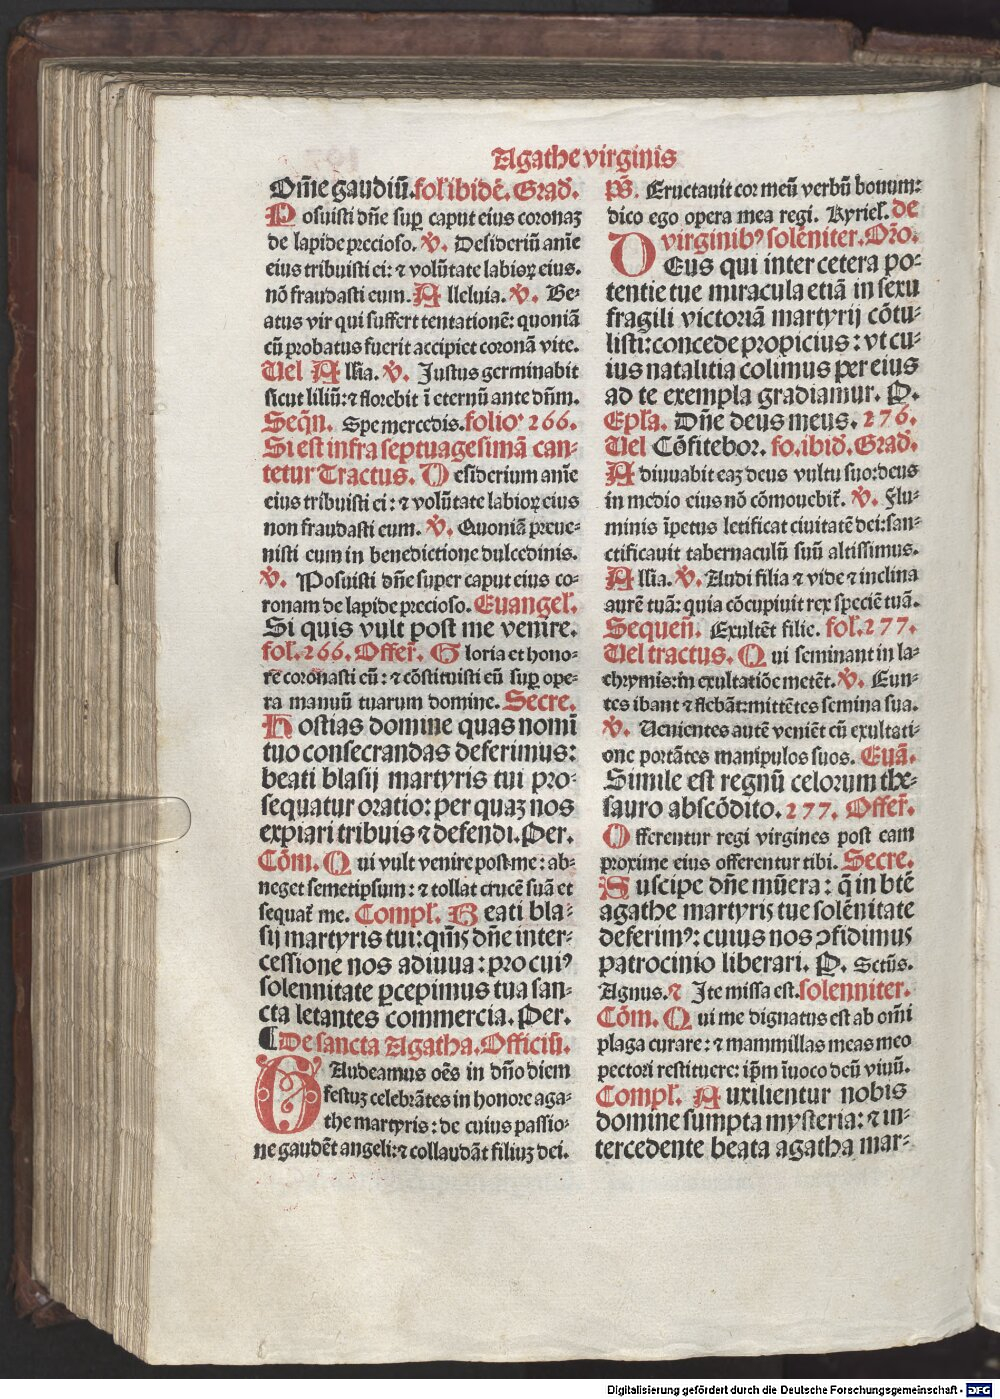 Agathe virginis
Om̄e gaudiū. fol̕ ibidē. Grad̕.
Posuisti dn̄e suꝑ caput eius coronaꝫ
de lapide precioso. ℣. Desideriū anīe
eius tribuisti ei: ⁊ volūtate labioꝝ eius.
nō fraudasti eum. Alleluia. ℣. Be⸗
atus vir qui suffert tentationē: quoniā
cū probatus fuerit accipiet coronā vite.
Uel All̄ia. ℣. Justus germinabit
sicut liliū: ⁊ florebit ī eternū ante dn̄m.
Seqn̄. Spe mercedis. folio 266.
Si est infra septuagesimā can⸗
tetur Tractus. Desiderium anīe
eius tribuisti ei: ⁊ volūtate labioꝝ eius
non fraudasti eum. ℣. Quoniā preue⸗
nisti eum in benedictione dulcedinis.
℣. Posuisti dn̄e super caput eius co⸗
ronam de lapide precioso. Euangel̕.
Si quis vult post me venire.
fol̕. 266. Offer̕. Gloria et hono⸗
re coronasti eū: ⁊ cōstituisti eū suꝑ ope⸗
ra manuū tuarum domine. Secre.
Hostias domine quas nomī
tuo consecrandas deferimus:
beati blasij martyris tui pro⸗
sequatur oratio: per quaꝫ nos
expiari tribuis ⁊ defendi. Per.
Cōm. Qui vult venire post me: ab⸗
neget semetipsum: ⁊ tollat crucē suā et
sequat̕ me. Compl̕. Beati bla⸗
sij martyris tui: qm̄s dn̄e inter⸗
cessione nos adiuua: pro cuiꝰ
solennitate ꝑcepimus tua san⸗
cta letantes commercia. Per.
¶ De sancta Agatha. Officiū.
GAudeamus oēs in dn̄o diem
festuꝫ celebrātes in honore aga⸗
the martyris: de cuius passio⸗
ne gaudēt angeli: ⁊ collaudāt filiuꝫ dei.
Ps̄. Eructauit cor meū verbū bonum:
dico ego opera mea regi. Kyriel̕. de
virginibꝰ solēniter. Or̄o.
DEus qui inter cetera po⸗
tentie tue miracula etiā in sexu
fragili victoriā martyrij cōtu⸗
listi: concede propicius: vt cu⸗
ius natalitia colimus per eius
ad te exempla gradiamur. P.
Epl̄a. Dn̄e deus meus. 276.
Uel Cōfitebor. fo. ibid̕. Grad̕.
Adiuuabit eaꝫ deus vultu suo: deus
in medio eius nō cōmouebit̕. ℣. Flu⸗
minis īpetus letificat ciuitatē dei: san⸗
ctificauit tabernaculū suū altissimus.
All̄ia. ℣. Audi filia ⁊ vide ⁊ inclina
aurē tuā: quia cōcupiuit rex speciē tuā.
Sequen̄. Exultēt filie. fol. 277.
Uel tractus. Qui seminant in la⸗
chrymis: in exultatiōe metēt. ℣. Eun⸗
tes ibant ⁊ flebāt: mittētes semina sua.
℣. Uenientes autē veniēt cū exultati⸗
one portātes manipulos suos. Euā.
Simile est regnū celorum the⸗
sauro abscōdito. 277. Offer̕.
Offerentur regi virgines post eam
proxime eius offerentur tibi. Secre.
Suscipe dn̄e mūera: q̄ in btē
agathe martyris tue solēnitate
deferimꝰ: cuius nos ↄfidimus
patrocinio liberari. P. Sctūs.
Agnus. ⁊ Ite missa est. solenniter.
Cōm. Qui me dignatus est ab om̄i
plaga curare: ⁊ mammillas meas meo
pectori restituere: ip̄m īuoco deū viuū.
Compl̕. Auxilientur nobis
domine sumpta mysteria: ⁊ in⸗
tercedente beata agatha mar⸗
Digitalisierung gefördert durch die Deutsche Forschungsgemeinschaft - DFG